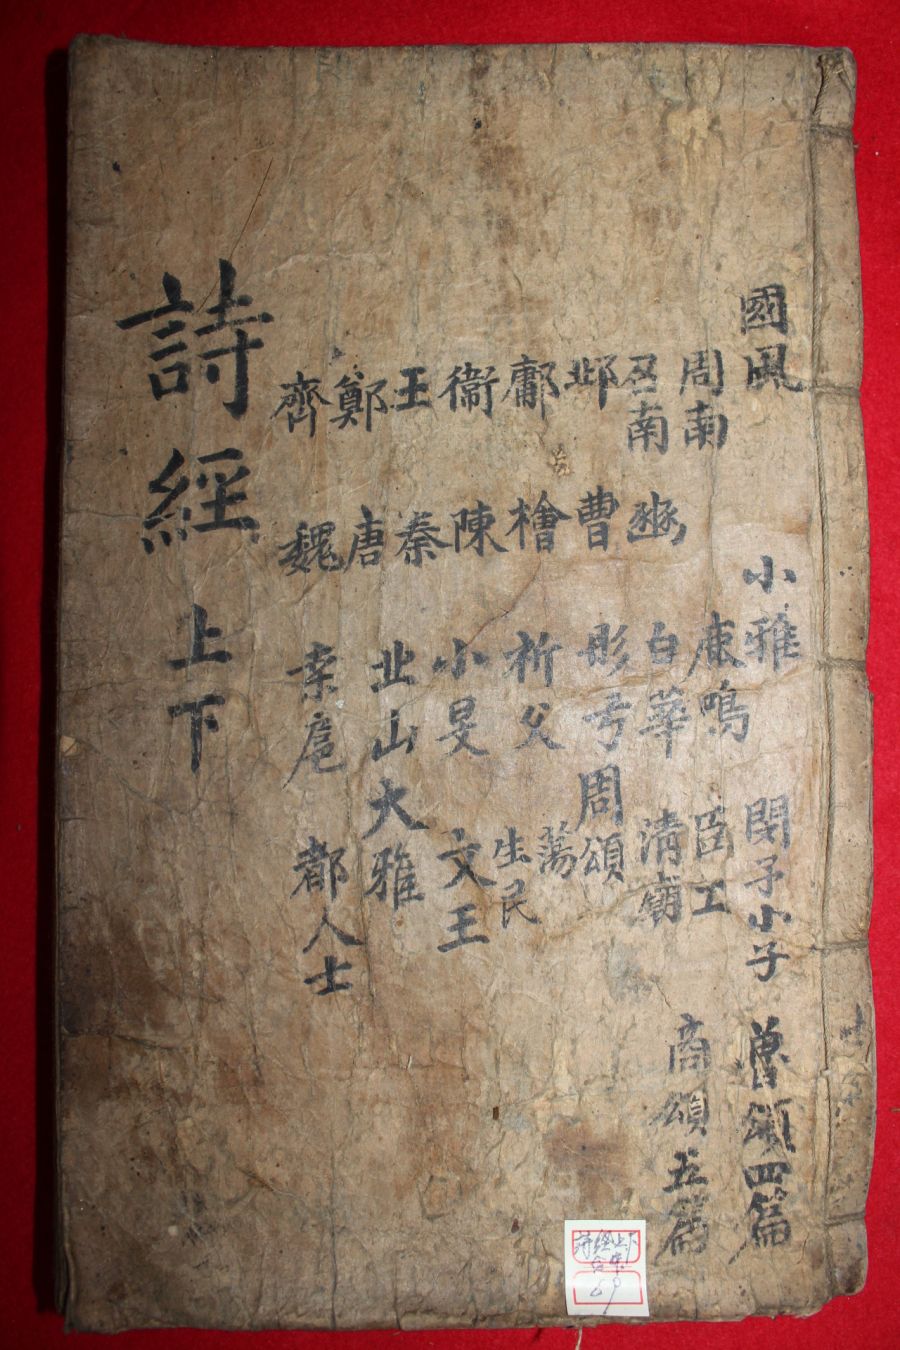 詩經 上下
國風
周南
召南
邶
鄘
衞
王
鄭
齊
豳
曹
檜
陳
秦
唐
魏
小雅
鹿鳴
白華
彤弓
祈父
小旻
北山
桑扈
都人士
大雅
文王
生民
蕩
周頌
清廟
臣工
閔子小子
魯頌四篇
商頌五篇
詩經上下
合本
69